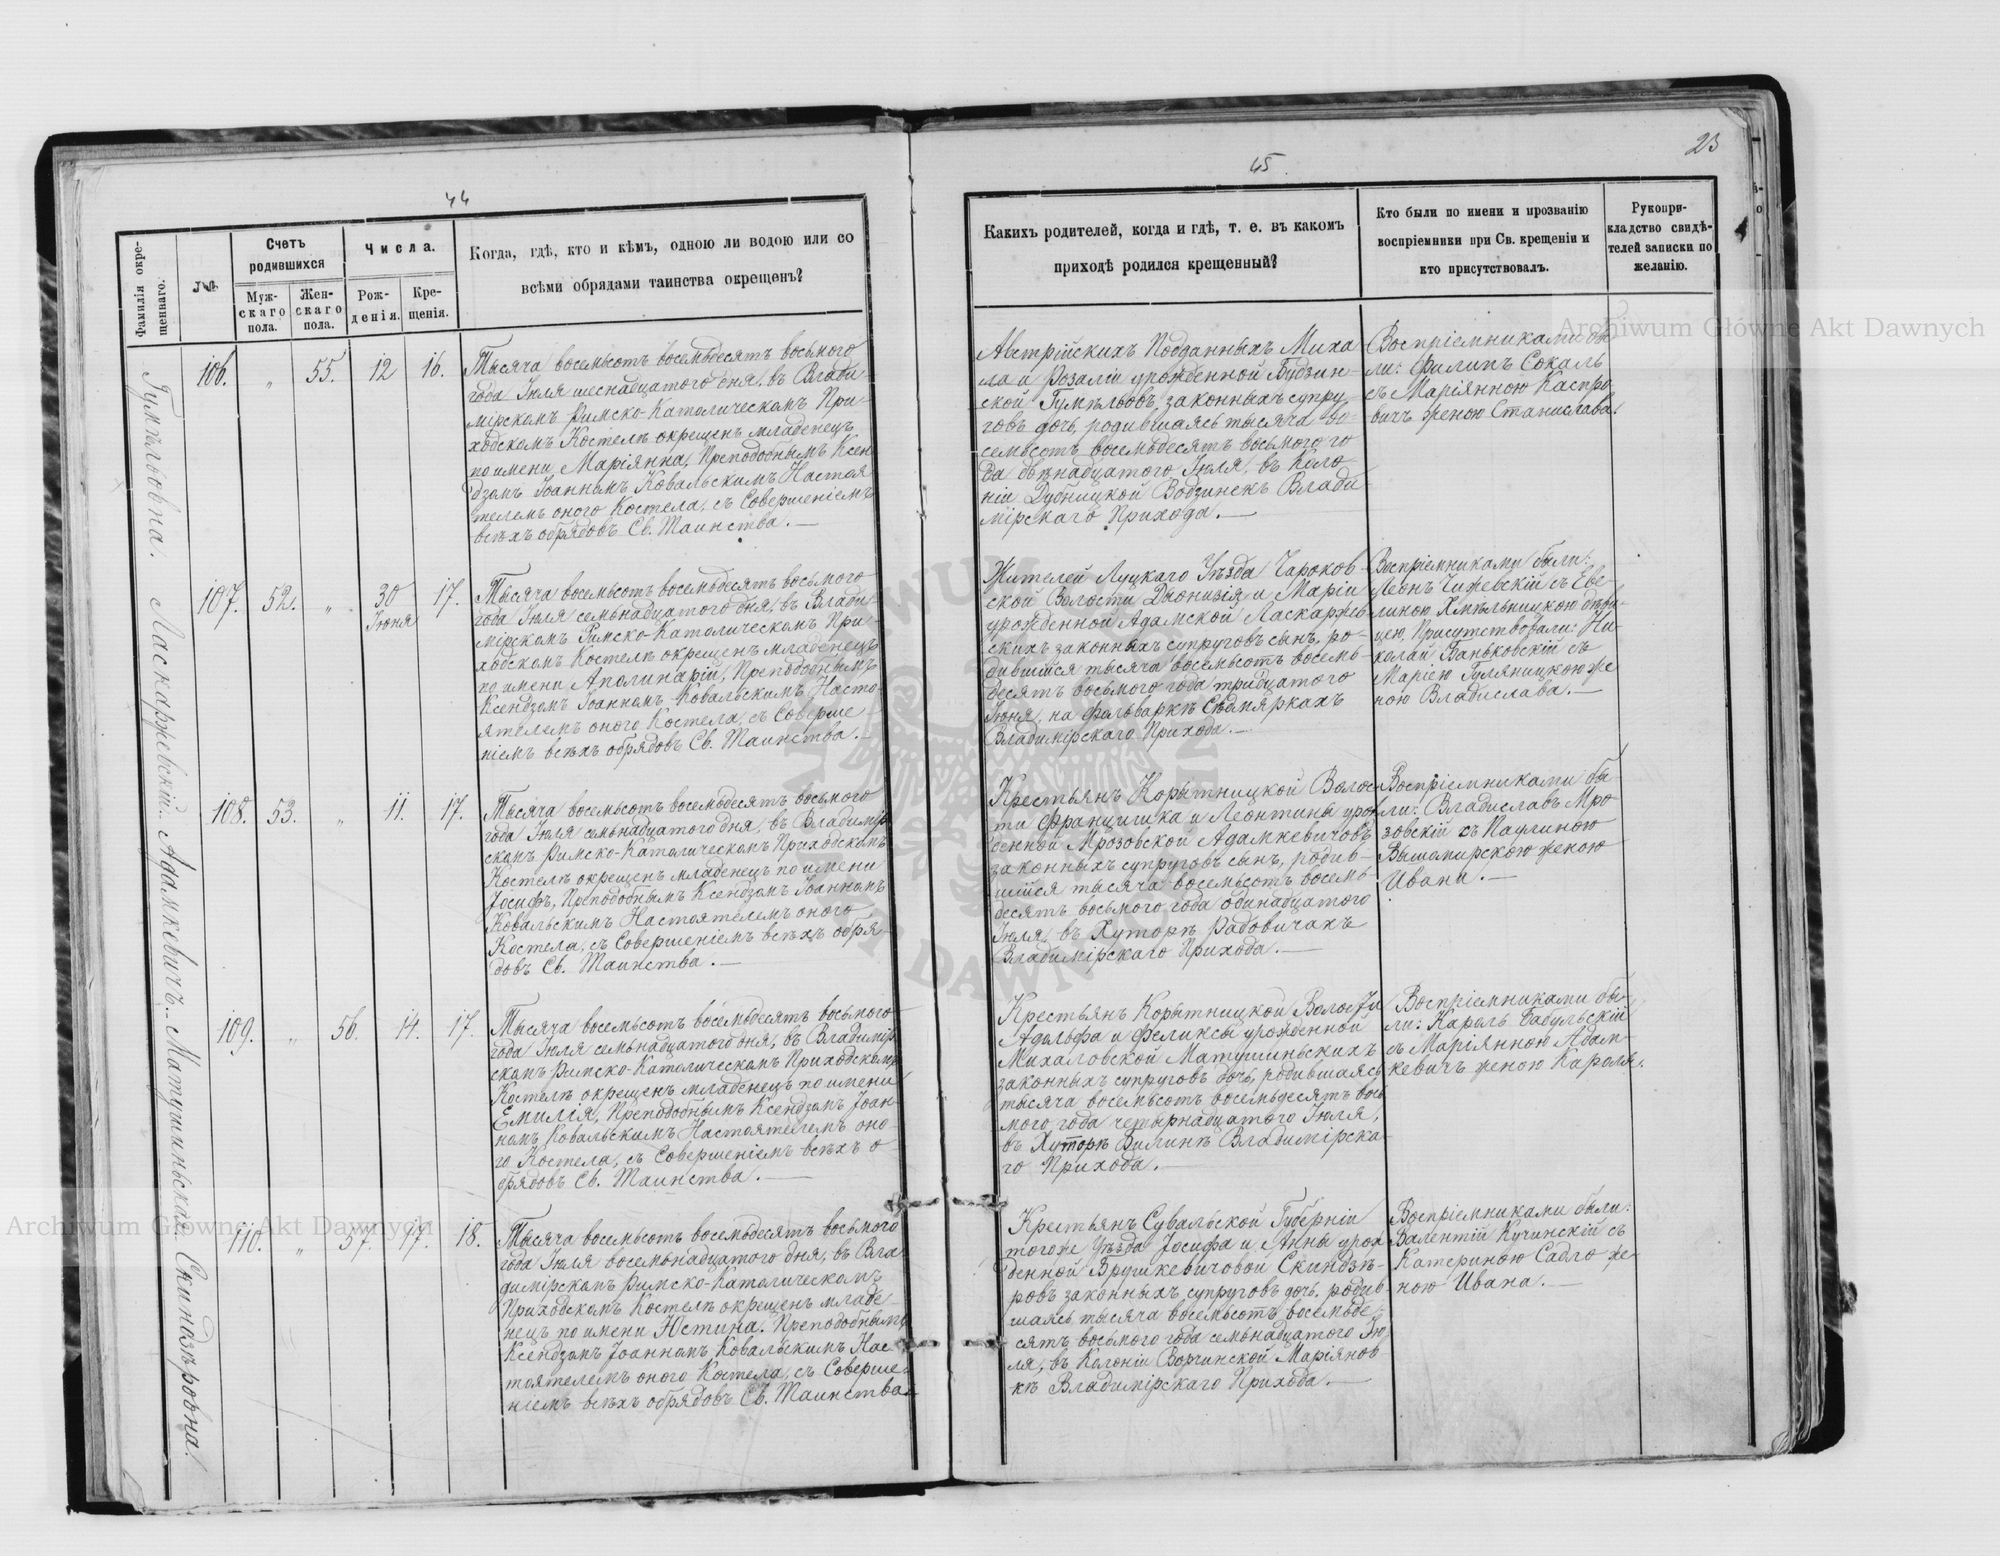 44
Фамилія окре-
щеннаго.
№
Счетъ
родившихся
Муж-
скаго
пола.
Жен-
скаго
пола.
Числа.
Рож-
денія.
Кре-
щенія.
Когда, гдѣ, кто и кѣмъ, одною ли водою или со
всѣми обрядами таинства окрещенъ?
106. " 55. 12 16.
Тысяча восемьсотъ восемьдесятъ восьмого
года Іюля шеснадцатого дня, въ Влади-
мірскомъ Римско-Католическомъ При-
ходскомъ Костелѣ окрещенъ младенецъ
по имени Маріянна, Преподобнымъ Ксен
дзомъ Іоанномъ Ковальскимъ Настоя
телемъ оного Костела, съ Совершеніемъ
всѣхъ обрядовъ Св. Таинства. —
107. 52. " 30 17.
Іюня
Тысяча восемьсотъ восемьдесятъ восьмого
года Іюля семьнадцатого дня, въ Влади-
мірскомъ Римско-Католическомъ При-
ходскомъ Костелѣ окрещенъ младенецъ
по имени Аполинарій, Преподобнымъ
Ксендзомъ Іоанномъ Ковальскимъ Насто-
ятелемъ оного Костела, съ Соверше
ніемъ всѣхъ обрядовъ Св. Таинства. —
108. 53. " 11. 17.
Тысяча восемьсотъ восемьдесятъ восьмого
года Іюля семьнадцатого дня, въ Владимір
скомъ Римско-Католическомъ Приходскомъ
Костелѣ окрещенъ младенецъ по имени
Іосифъ, Преподобнымъ Ксендзомъ Іоанномъ
Ковальскимъ Настоятелемъ оного
Костела, съ Совершеніемъ всѣхъ обря-
довъ Св. Таинства. —
109. " 56. 14. 17.
Тысяча восемьсотъ восемьдесятъ восьмого
года Іюля семьнадцатого дня, въ Владимір
скомъ Римско-Католическомъ Приходскомъ
Костелѣ окрещенъ младенецъ по имени
Емилія, Преподобнымъ Ксендзомъ Іоан-
номъ Ковальскимъ Настоятелемъ оно-
го Костела, съ Совершеніемъ всѣхъ о-
брядовъ Св. Таинства. —
110. " 57. 17. 18.
Тысяча восемьсотъ восемьдесятъ восьмого
года Іюля восемьнадцатого дня, въ Вла-
димірскомъ Римско-Католическомъ
Приходскомъ Костелѣ окрещенъ младе-
нецъ по имени Юстина. Преподобнымъ
Ксендзомъ Іоанномъ Ковальскимъ Нас-
тоятелемъ оного Костела, съ Соверше-
ніемъ всѣхъ обрядовъ Св. Таинства.
Гумѣльовна. Ласкаржевскій. Адамкевичъ. Матушиньская. Скиндзѣровна.
45
23
Какихъ родителей, когда и гдѣ, т. е. въ какомъ
приходѣ родился крещенный?
Кто были по имени и прозванію
воспріемники при Св. крещеніи и
кто присутствовалъ.
Рукопри-
кладство свидѣ-
телей записки по
желанію.
Австрійскихъ Подданныхъ Миха
ла и Розаліи урожденной Будзин-
ской Гумѣльовъ, законныхъ супру
говъ дочь, родившаясь тысяча во-
семьсотъ восемьдесятъ восьмого го
да двѣнадцатого Іюля, въ Коло
ніи Дубницкой Водзинскъ Влади
мірскаго Прихода. —
Воспріемниками бы
ли: Филипъ Сокалъ
съ Маріянною Каспро
вичъ женою Станислава.
Жителей Луцкаго Уѣзда Чароков-
ской Волости Діонизія и Маріи
урожденной Адамской Ласкаржев
скихъ законныхъ супруговъ сынъ, ро-
дившійся тысяча восемьсотъ восемь-
десятъ восьмого года тридцатого
Іюня, на фольваркѣ Сѣдмяркахъ
Владимірскаго Прихода. —
Воспріемниками были:
Леонъ Чижевскій съ Еве-
линою Хмѣльницкою дѣви-
цею, Присутствовали: Ни-
колай Баньковскій съ
Маріею Гуляницкою же
ною Владислава. —
Крестьянъ Корытницкой Волос
ти Францишка и Леонтины урож
денной Мрозовской Адамкевичовъ
законныхъ супруговъ сынъ, родив-
шійся тысяча восемьсотъ восемь-
десятъ восьмого года одинадцатого
Іюля, въ Хуторѣ Радовичахъ
Владимірскаго Прихода. —
Воспріемниками бы
ли: Владиславъ Мро
зовскій съ Паулиною
Вышомирскою женою
Ивана. —
Крестьянъ Корытницкой Волости
Адольфа и Феликсы урожденной
Михаловской Матушиньскихъ
законныхъ супруговъ дочь, родившаясь
тысяча восемьсотъ восемьдесятъ вось
мого года четырнадцатого Іюля,
въ Хуторѣ Билинѣ Владимірска-
го Прихода. —
Воспріемниками бы-
ли: Кароль Бабульскій
съ Маріянною Адам-
кевичъ женою Кароля.
Крестьянъ Сувальской Губерніи
тогоже Уѣзда Іосифа и Анны урож
денной Врушкевичовой Скиндзѣ-
ровъ законныхъ супруговъ дочь, родив-
шаясь тысяча восемьсотъ восемьде-
сятъ восьмого года семьнадцатого Ію
ля, въ Колоніи Ворчинской Маріянов-
кѣ Владимірскаго Прихода. —
Воспріемниками были:
Валентій Кучинскій съ
Катериною Садло же-
ною Ивана. —
Archiwum Główne Akt Dawnych
Archiwum Główne Akt Dawnych